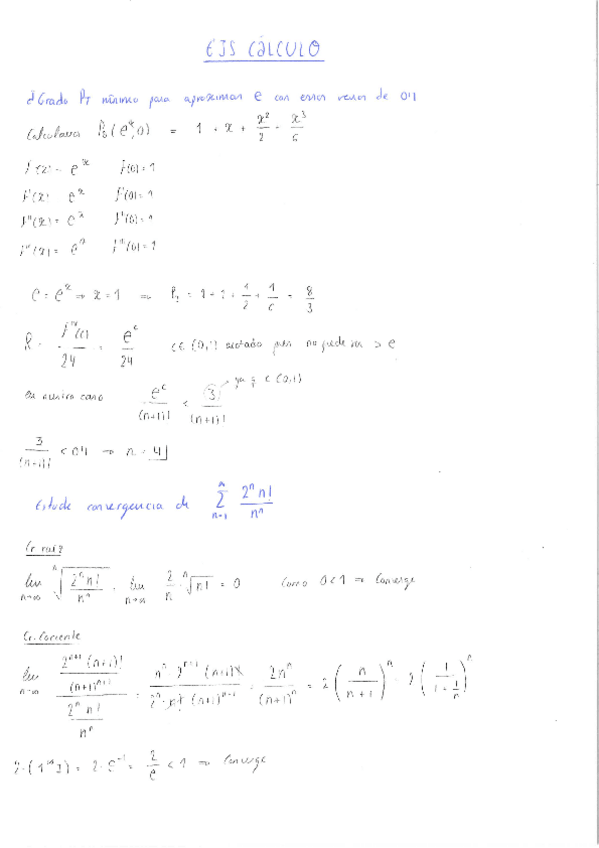 EJS CÁLCULO
Grado PT mínimo para aproximar e con error menor de 0'1
Calculamos P3(e^x, 0) = 1 + x + x²/2 + x³/6
f(x) = e^x f(0) = 1
f'(x) = e^x f'(0) = 1
f''(x) = e^x f''(0) = 1
f'''(x) = e^x f'''(0) = 1
e = e^x ⇒ x = 1 ⇒ PT = 1 + 1 + 1/2 + 1/6 = 8/3
R = f^IV(c)/24 = e^c/24 c ∈ (0,1) acotado pues no puede ser > e
en nuestro caso e^c/(n+1)! < 3/(n+1)! → ya q c (0,1)
3/(n+1)! < 0'1 → n = 4
Estude convergencia de ∑ n=1 ∞ 2^n n!/n^n
Cr. raíz
lim n→∞ ⁿ√(2^n n!/n^n) = lim n→∞ 2/n · ⁿ√n! = 0 Como 0 < 1 ⇒ Converge
Cr. Cociente
lim n→∞ (2^(n+1) (n+1)!/(n+1)^(n+1))/(2^n n!/n^n) = n^n · 2^(n+1) (n+1)!/(2^n · n! (n+1)^(n+1)) = 2n^n/(n+1)^n = 2 (n/(n+1))^n = 2 (1/(1+1/n))^n
= 2 · e^-1 = 2/e < 1 ⇒ Converge